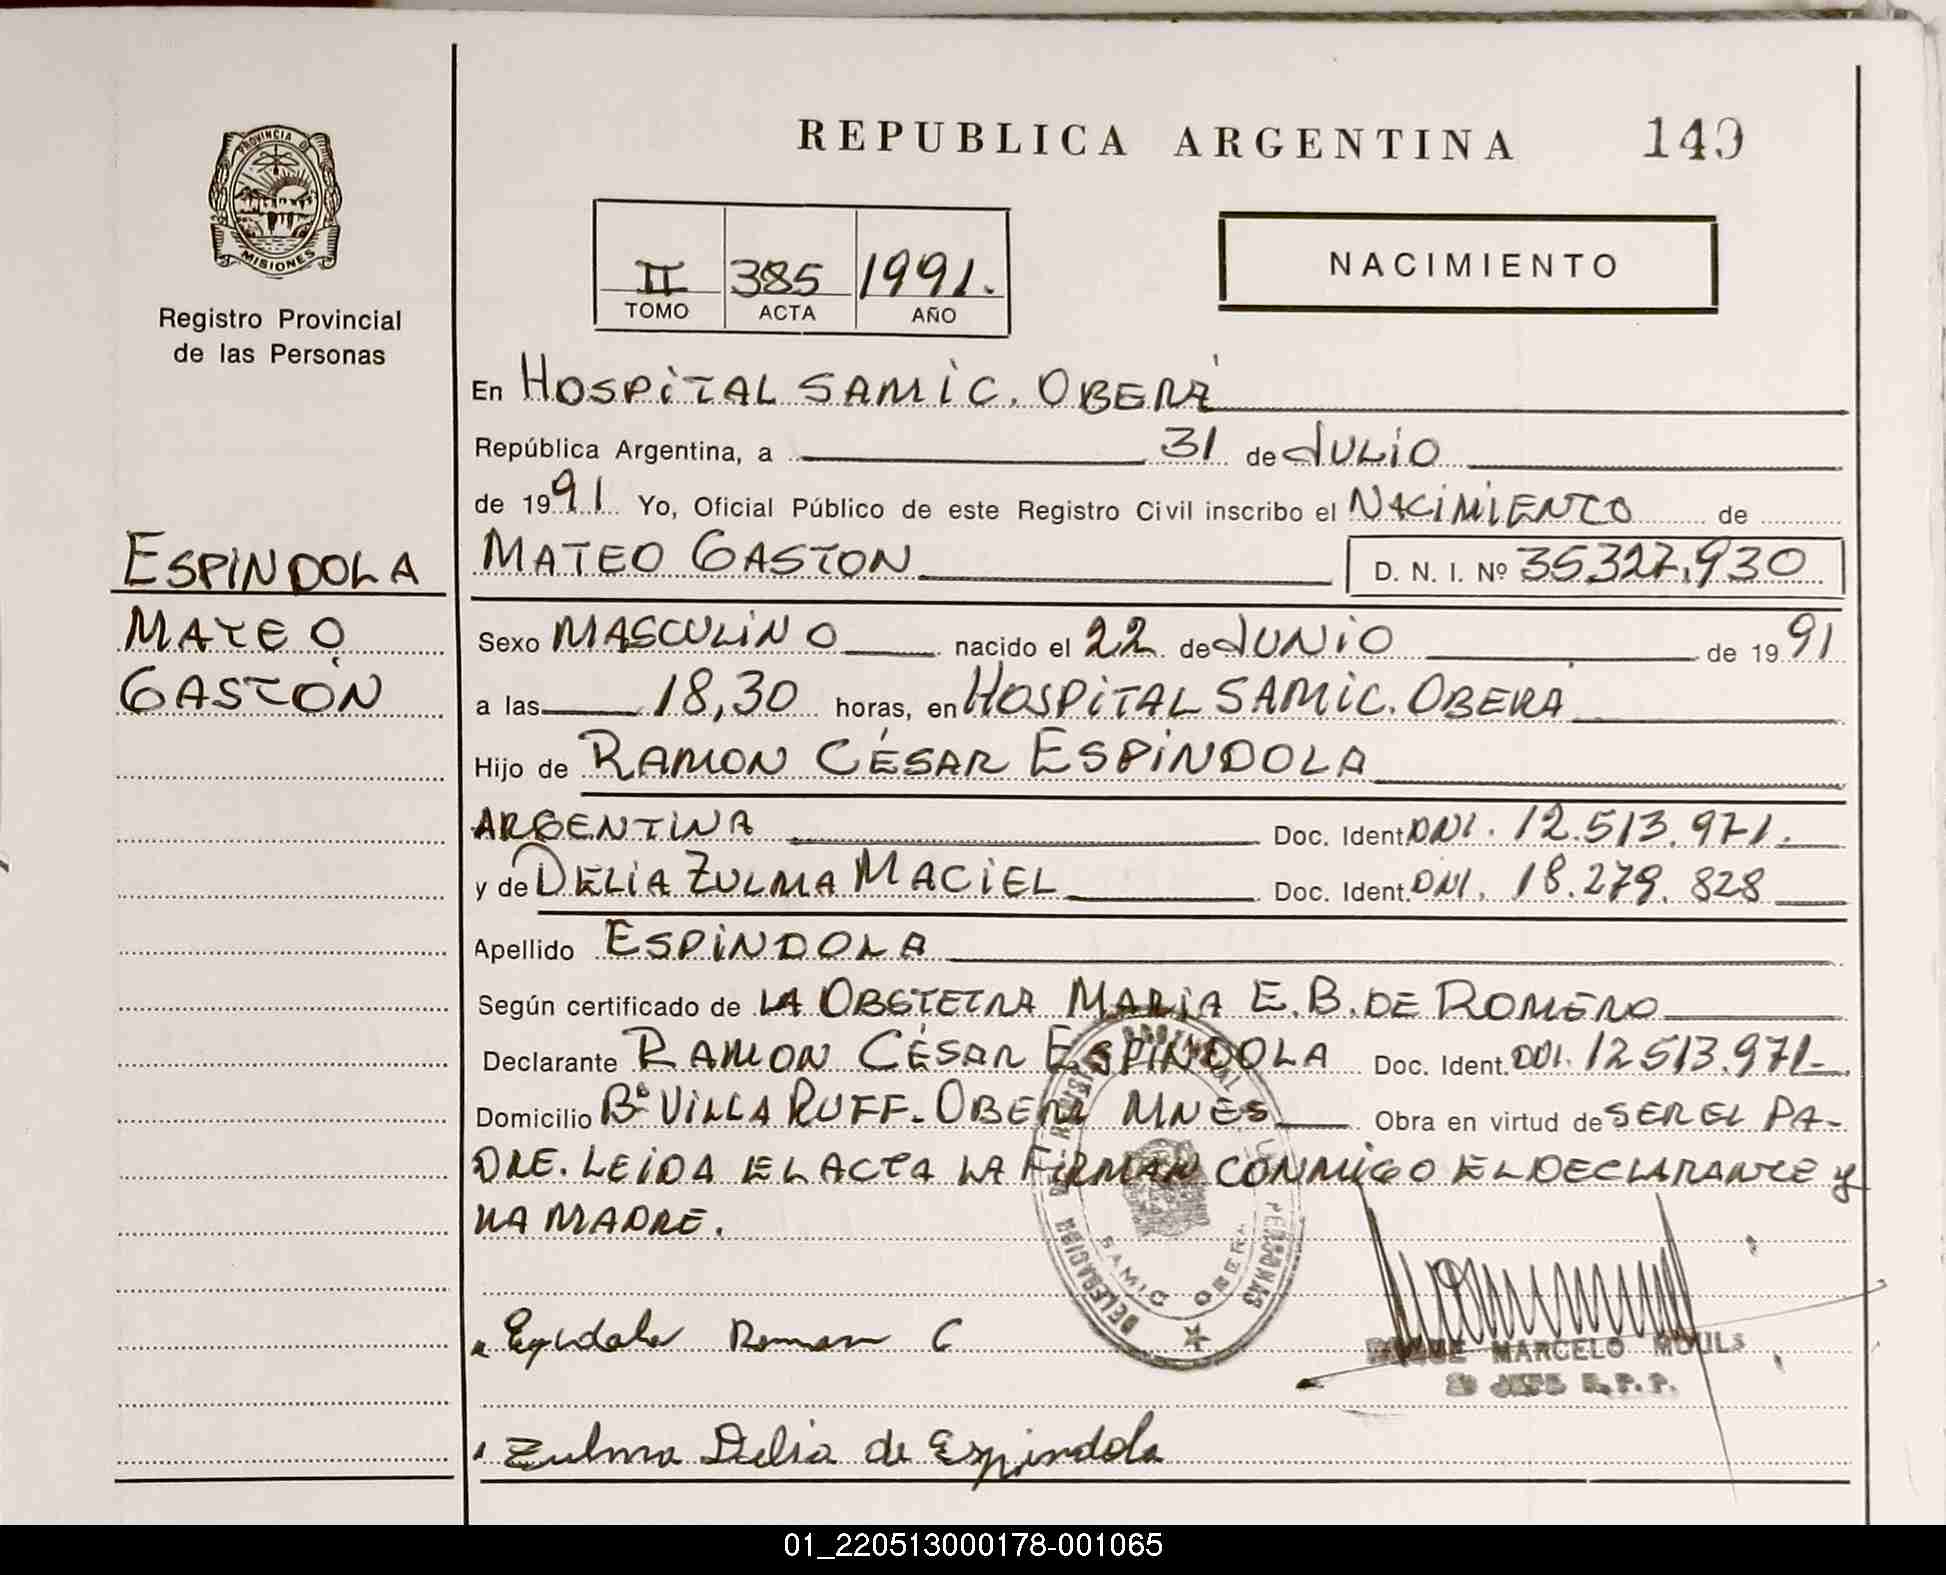 REPUBLICA ARGENTINA 149
PROVINCIA D
MISIONES
Registro Provincial
de las Personas
II 385 1991.
TOMO ACTA AÑO
NACIMIENTO
En HOSPITAL SAMIC. OBERÁ
República Argentina, a 31 de JULIO
de 1991 Yo, Oficial Público de este Registro Civil inscribo el NACIMIENTO de
MATEO GASTON D. N. I. Nº 35.327.930
ESPINDOLA
MATEO
GASTÓN
Sexo MASCULINO nacido el 22 de JUNIO de 1991
a las 18,30 horas, en HOSPITAL SAMIC. OBERA
Hijo de RAMON CÉSAR ESPINDOLA
ARGENTINA Doc. Ident. DNI. 12.513.971.
y de DELIA ZULMA MACIEL Doc. Ident. DNI. 18.279.828
Apellido ESPINDOLA
Según certificado de LA OBSTETRA MARIA E. B. DE ROMERO
Declarante RAMON CÉSAR ESPINDOLA Doc. Ident. DNI. 12513.971-
Domicilio Bº VILLA RUFF- OBERA MNES Obra en virtud de SER EL PA-
DRE. LEIDA EL ACTA LA FIRMAN CONMIGO EL DECLARANTE y
LA MADRE.
DELEGACION PERSONAS
SAMIC OBERA
Espindola Roman C
MARCELO
JEFE R.P.P.
Zulma Delia de Espindola
01_220513000178-001065